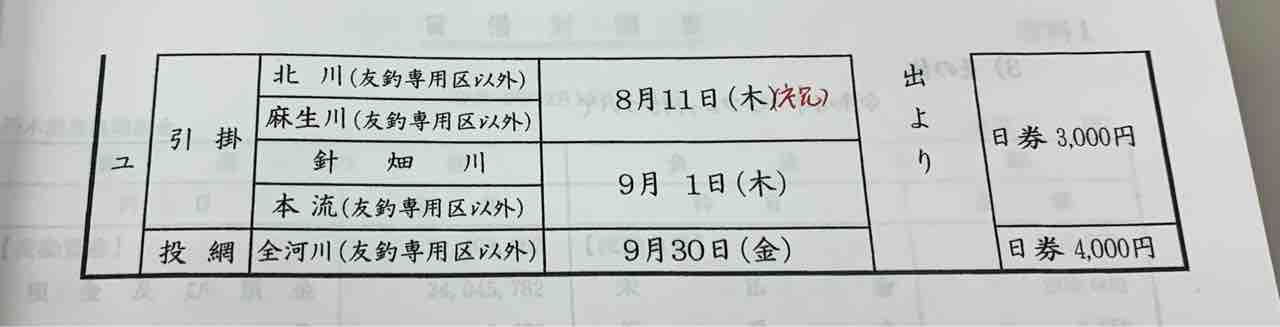 ユ
引掛
北川(友釣専用区以外)
麻生川(友釣専用区以外)
8月11日(木)(祝)
針畑川
本流(友釣専用区以外)
9月 1日(木)
出より
日券 3,000円
投網
全河川(友釣専用区以外)
9月30日(金)
日券 4,000円
24,045,782